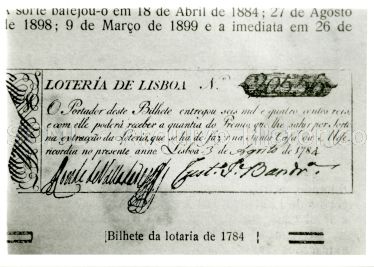 A sorte bafejou-o em 18 de Abril de 1884; 27 de Agosto
de 1898; 9 de Março de 1899 e a imediata em 26 de
LOTERÍA DE LISBOA N.º 20556
O Portador deste Bilhete entregou seis mil e quatro centos reis
e com elle poderá receber a quantia do Premio, que lhe sahir por sorte
na extracção da Loteria, que se ha de fazer na Santa Casa da Mise-
ricordia no presente anno. Lisboa 3 de Agosto de 1784
[Bilhete da lotaria de 1784]